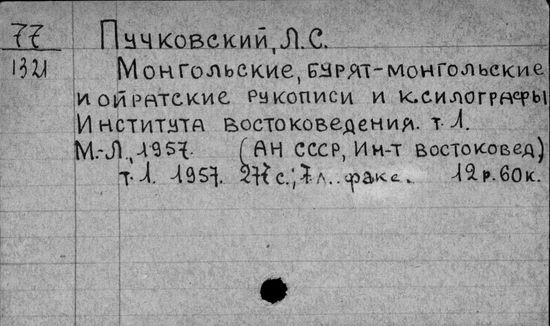 77 Пучковский, Л.С.
1321 Монгольские, бурят-монгольские
и ойратские рукописи и ксилографы
Института востоковедения. т.1.
М.-Л., 1957. (АН СССР, Ин-т востоковед)
т.1. 1957. 277 с.; 7 л. факс. 12 р. 60 к.